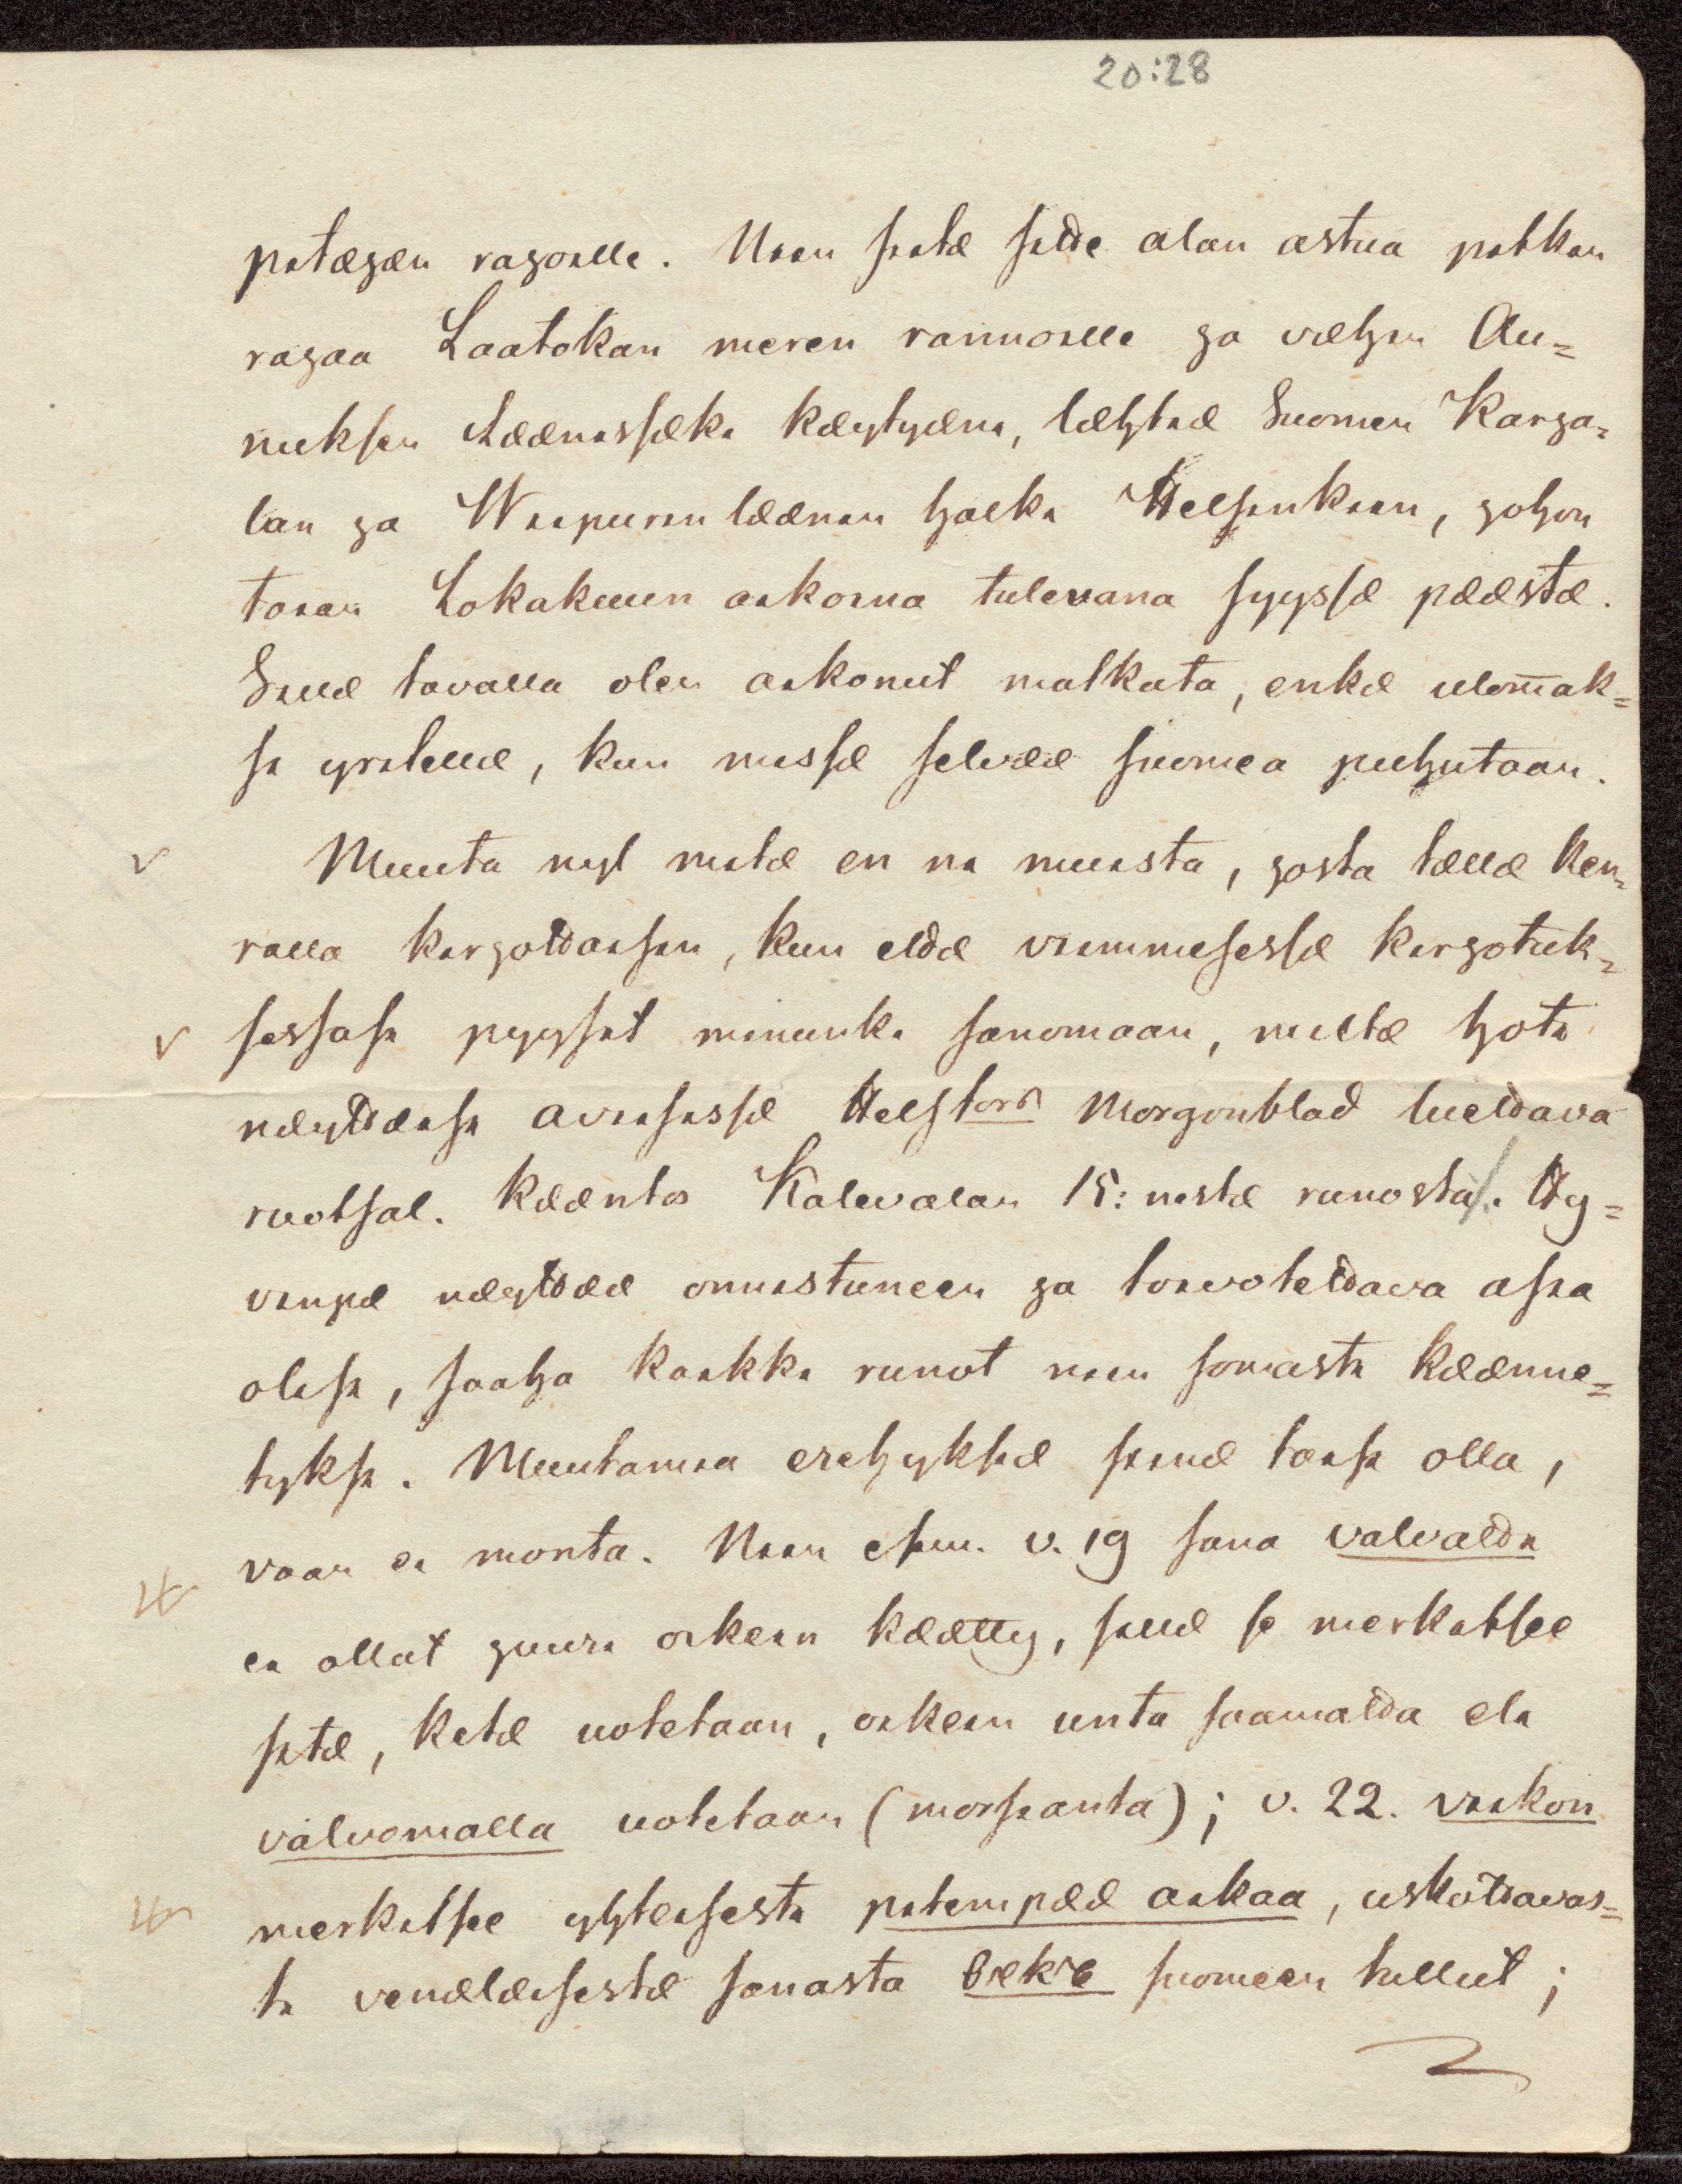 20:28
pitäjän rajoille. Niin siitä sitte alan astua pitkin
rajaa Laatokan meren rannoille ja vähin Au=
nuksen läänissäki käytyäni, lähteä Suomen Karja=
lan ja Wiipurin läänin halki Helsinkiin, johon
Lokakuun aikoina tulevana syyssä päästä.
Sillä tavalla olen aikonut matkata, enkä ulom̄ak=
si yritellä, kun missä selvää suomea puhutaan.
Muuta nyt mitä en ni muista, josta tällä ker=
ralla kirjottaisin, kun että viimmesessä kirjotuk=
sessasi pyysit minunki sanomaan, miltä hoti
näyttäisi aviisissä Helsfors Morgonblad luettava
ruotsal. kääntös Kalevalan 15:nestä runosta. Hy=
vinpä näyttää onnistuneen ja toivotettava asia
olisi, saaha kaikki runot niin somasti käänne=
tyksi. Muutamia erehyksiä siinä taisi olla,
vaan ei monta. Niin esim. v. 19 sana valvatti
ei ollut juuri oikein käätty, sillä se merkitsee
sitä, kitä uotetaan, oikein unta saamatta eli
valvomalla uotetaan (morsianta); v. 22. viikon
merkitsee yhteisesti pitempää aikaa, uskottavas=
ti venäläisestä sanasta вѣкъ suomeen tullut;